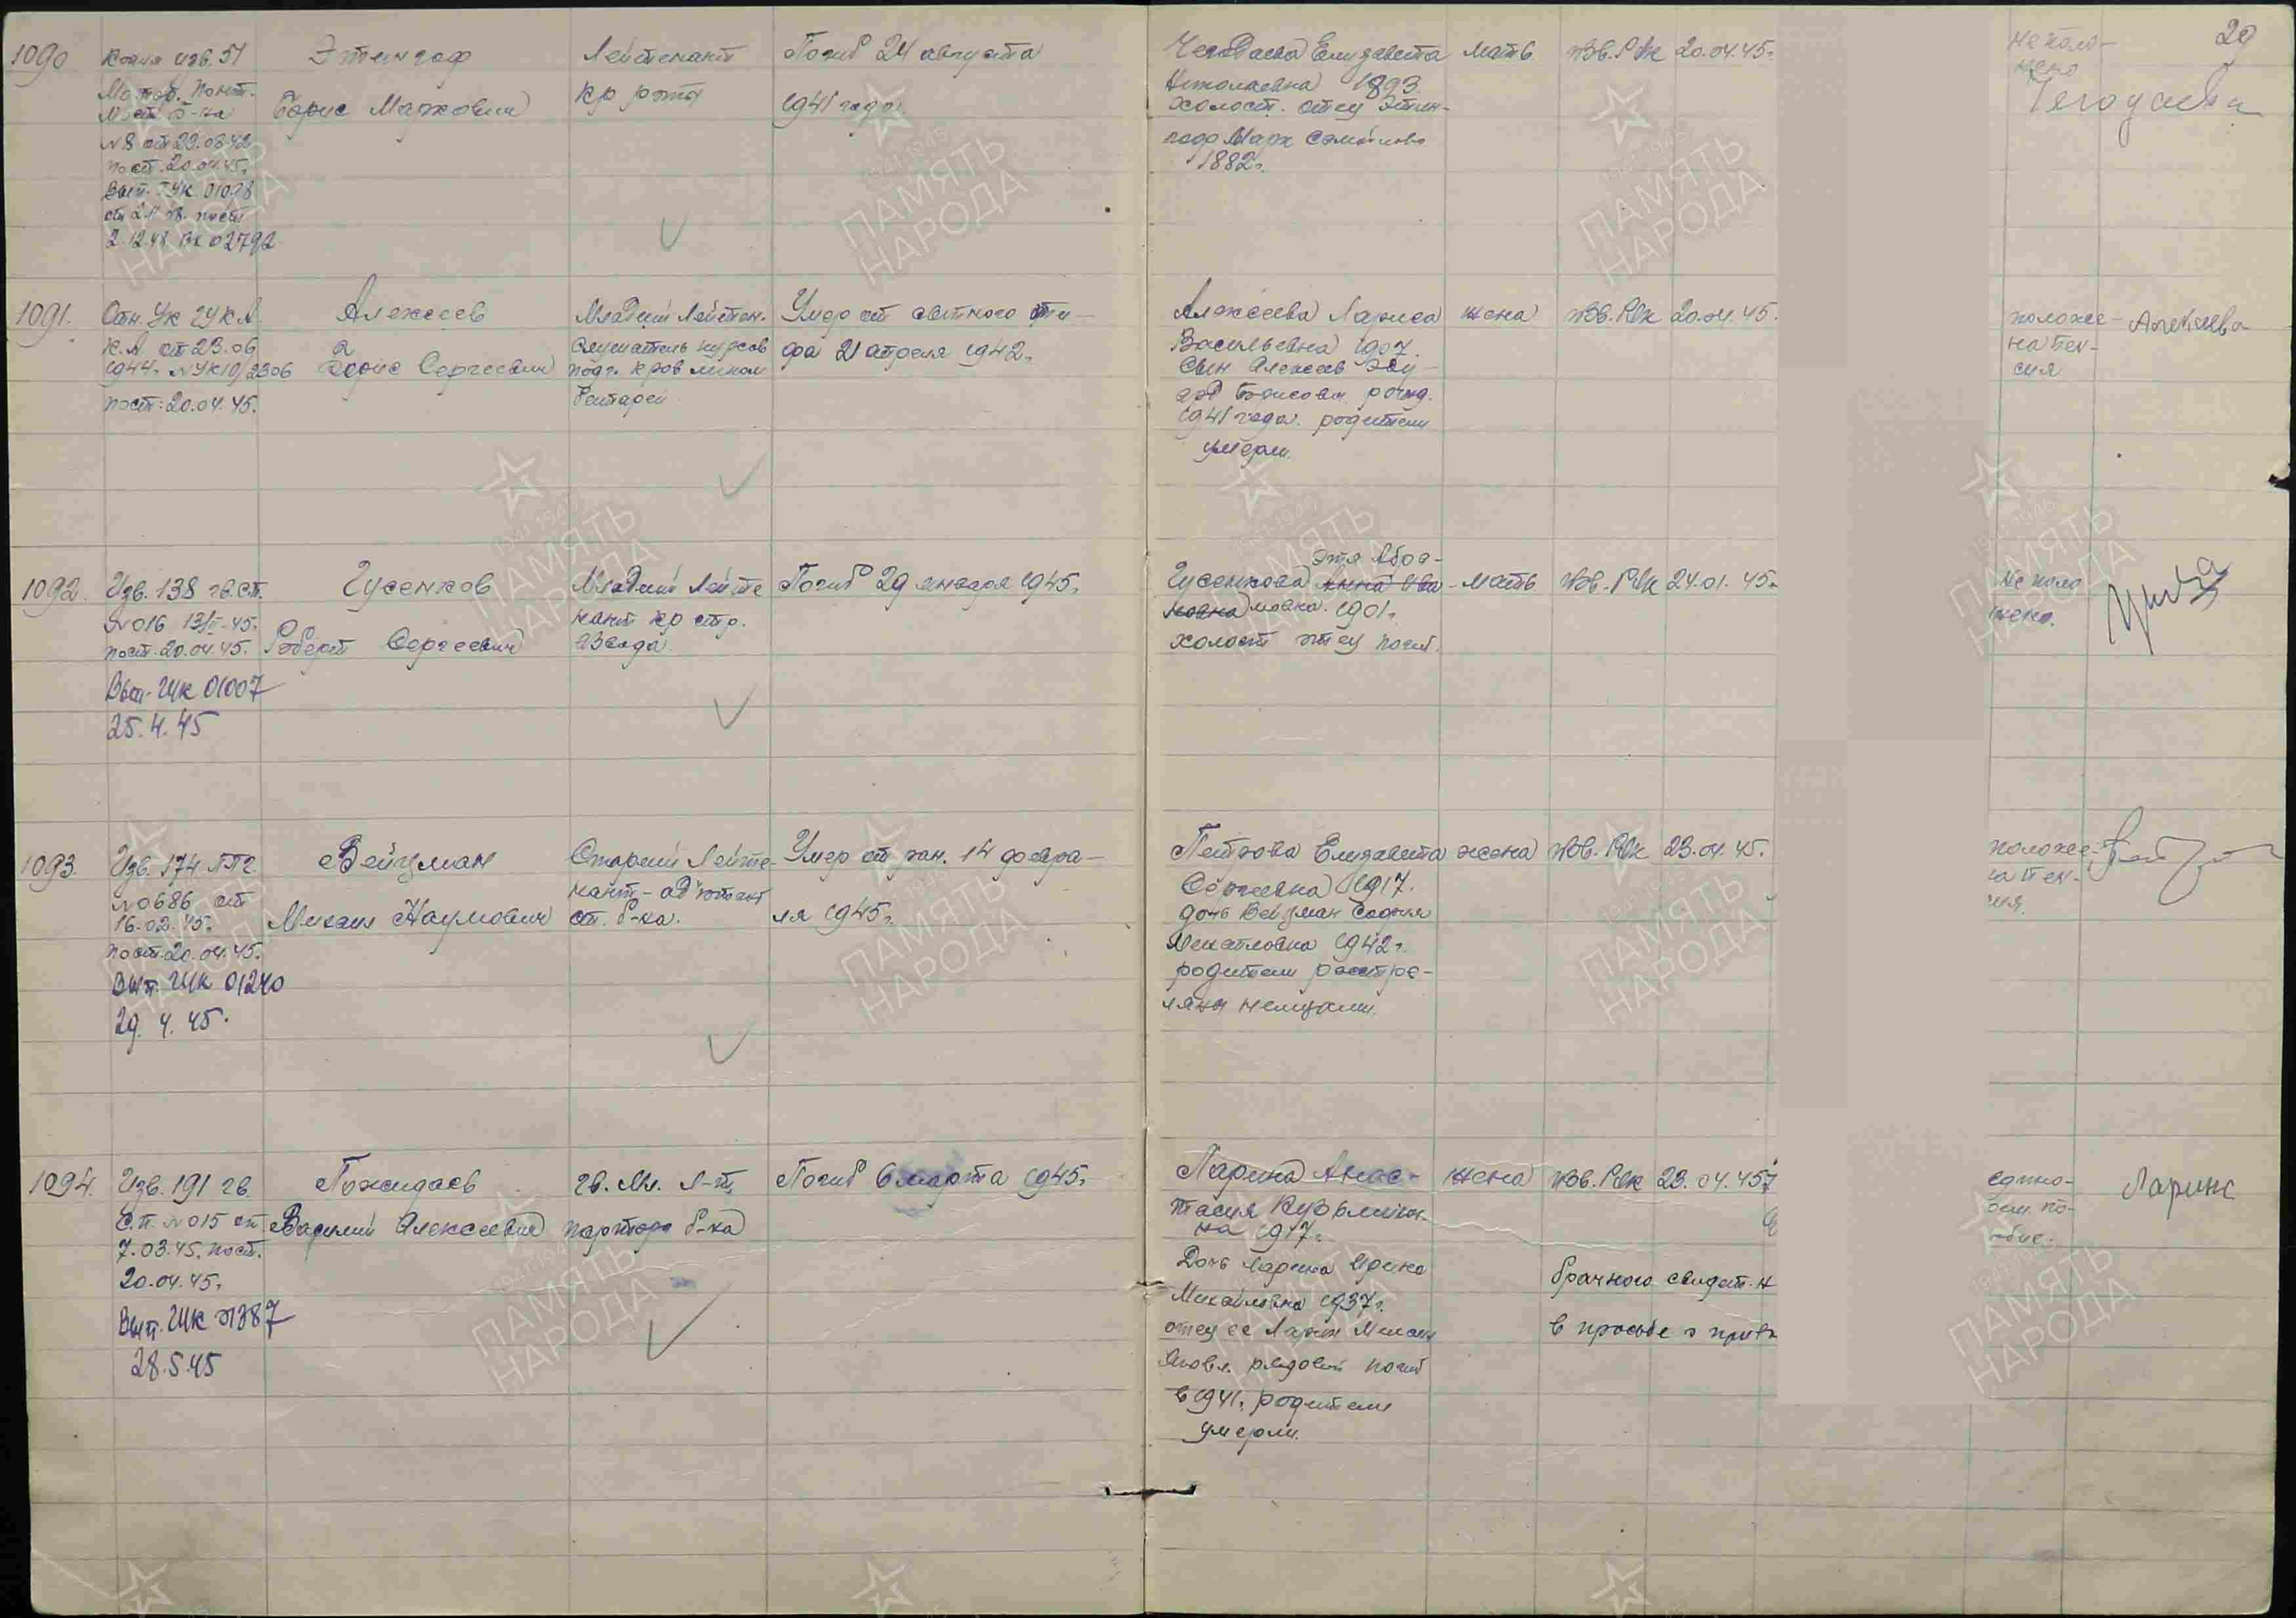 29
1090
Копия изв. 51
Мо.тоб. понт.
Мост. б-на
N 8 от 22.08.42
пост. 20.04.45г.
Вып. ГУК 01098
пост
2.12.48 Вх 02792
Этингоф
Борис Маркович
Лейтенант
к-р роты
Погиб 24 августа
1941 года
Чегодаева Елизавета
Николаевна 1893.
холост. отец Этин-
гоф Марк Самойлов.
1882г.
мать
РВК 20.04.45г.
не поло-
жено
Чегодаева
1091.
Отн. УК ГУКА
К.А. от 23.06
1944г. N УК10/2306
пост: 20.04.45.
Алексеев
Борис Сергеевич
Младший Лейтен.
слушатель курсов
подг. к-ров мином
батарей
Умер от сыпного ти-
фа 21 апреля 1942г.
Алексеева Лариса
Васильевна 1907.
Сын Алексеев Эду-
ард Борисович рожд.
1941 года. родители
умерли.
жена
РВК 20.04.45.
положе-
на пен-
сия
Алексеева
1092.
Изв. 138 гв.ст.
N 016 13/II-45г.
пост. 20.04.45.
Вып. ГУК 01007
25.4.45
Гусенков
Роберт Сергеевич
Младший Лейте
нант к-р стр.
взвода
Погиб 29 января 1945г.
Этя Абра-
Гусенкова Анна Ива-
новна мовна. 1901г.
холост отец погиб.
мать
РВК 24.01.45г.
Не поло
жено.
1093.
Изв. 174 ППГ
N 0686 от
16.02.45г.
пост. 20.04.45.
Вып. ГУК 01240
29.4.45.
Вейцман
Михаил Наумович
Старший Лейте-
нант - ад'ютант
ст. б-на.
Умер от ран. 14 февра-
ля 1945г.
Петрова Елизавета
Сергеевна 1917.
дочь Вейцман Софья
Михайловна 1942г.
родители расстре-
ляны немцами.
жена
РВК 23.04.45.
положе-
на пен-
сия.
1094.
Изв. 191 гв.
С.п. N 015 от
7.03.45. пост.
20.04.45г.
Вып. ГУК 01387
28.5.45
Пожидаев
Василий Алексеевич
гв. Мл. Л-т,
парторг б-на
Погиб 6 марта 1945г.
Ларина Анас-
тасия Кузьминич-
на 1917г.
Дочь Ларина Ирина
Михайловна 1937г.
отец ее Ларин Михаил
Яковл. рядовой погиб
в 1941г. родители
умерли.
жена
РВК 23.04.45г
брачного свидет. н
в просьбе о
едино-
вр. по-
собие.
Ларина
ПАМЯТЬ
НАРОДА
1941-1945